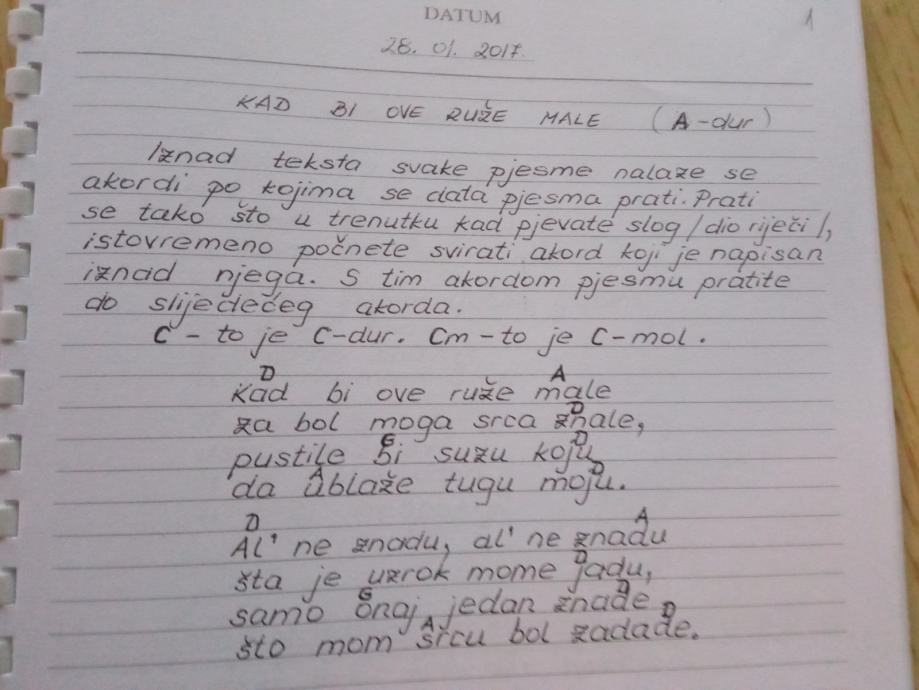 DATUM
1
28. 01. 2017.
KAD BI OVE RUŽE MALE (A-dur)
Iznad teksta svake pjesme nalaze se
akordi po kojima se data pjesma prati. Prati
se tako što u trenutku kad pjevate slog /dio riječi/,
istovremeno počnete svirati akord koji je napisan
iznad njega. S tim akordom pjesmu pratite
do slijedećeg akorda.
C - to je C-dur. Cm - to je C-mol.
D A
Kad bi ove ruže male
D
za bol moga srca znale,
G D
pustile bi suzu koju
A D
da ublaže tugu moju.
D A
Al' ne znadu, al' ne znadu
D
šta je uzrok mome jadu,
G D
samo onaj jedan znade
A D
što mom srcu bol zadade.